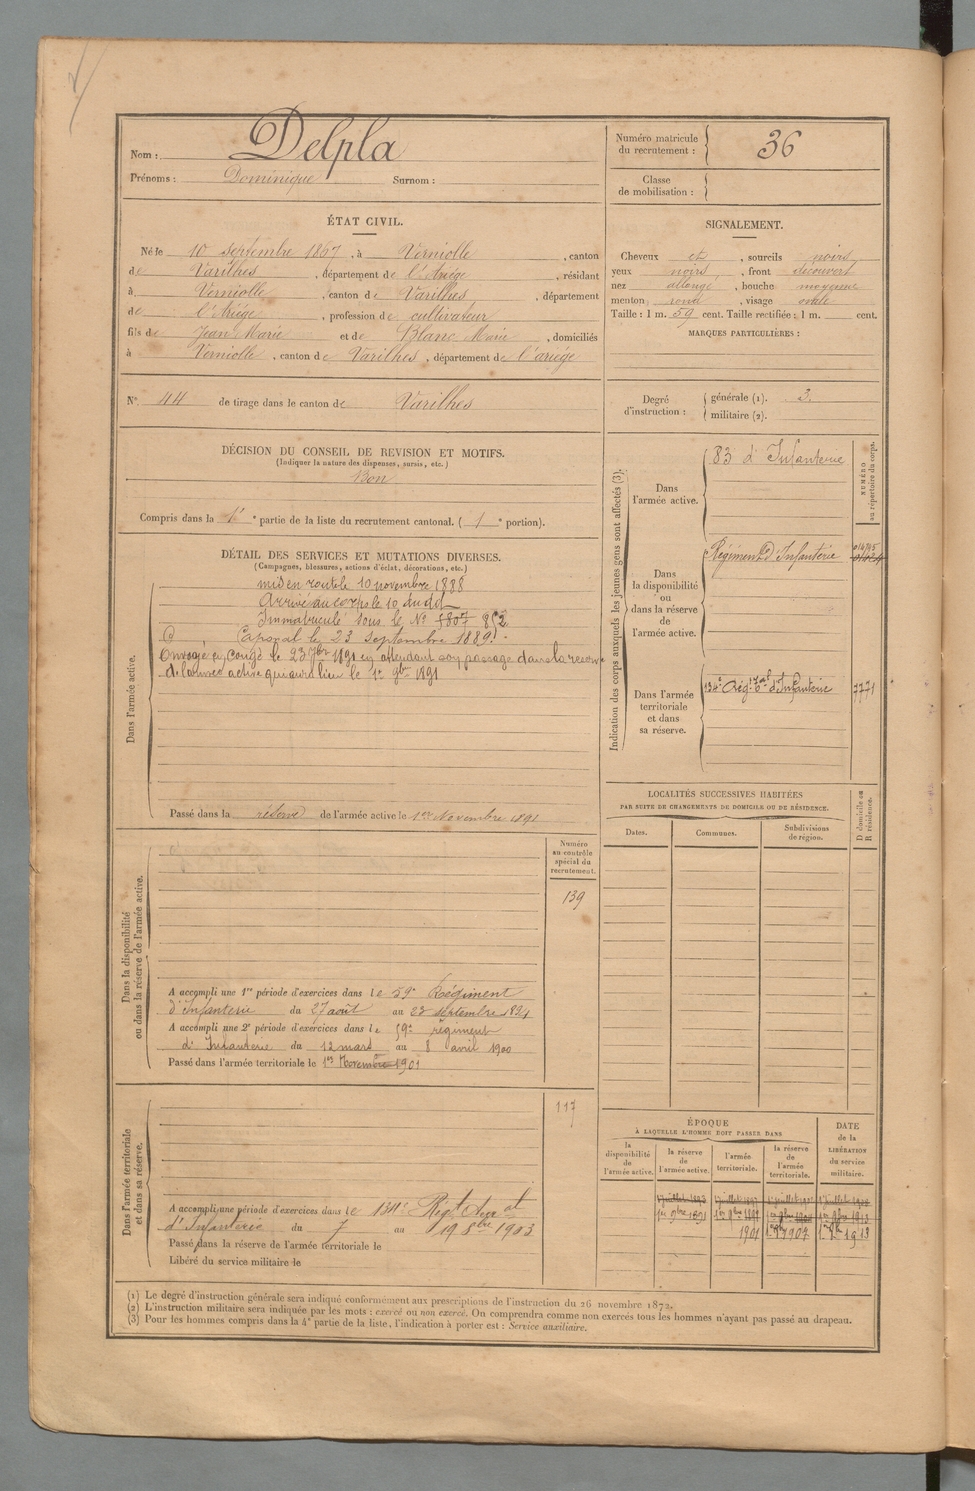 Nom : Delpla
Prénoms : Dominique Surnom :
Numéro matricule du recrutement : 36
Classe de mobilisation :
ÉTAT CIVIL.
Né le 10 septembre 1867, à Verniolle, canton
de Varilhes, département de l'Ariège, résidant
à Verniolle, canton de Varilhes, département
de l'Ariége, profession de cultivateur
fils de Jean Marie et de Blanc Marie, domiciliés
à Verniolle, canton de Varilhes, département de l'ariege
SIGNALEMENT.
Cheveux et, sourcils noirs
yeux noirs, front découvert
nez allongé, bouche moyenne
menton rond, visage ovale
Taille : 1 m. 59 cent. Taille rectifiée : 1 m. cent.
MARQUES PARTICULIÈRES :
N° 44 de tirage dans le canton de Varilhes
Degré d'instruction : générale (1). 3.
militaire (2).
DÉCISION DU CONSEIL DE REVISION ET MOTIFS.
(Indiquer la nature des dispenses, sursis, etc.)
Bon
Compris dans la 1e partie de la liste du recrutement cantonal. (1e portion).
DÉTAIL DES SERVICES ET MUTATIONS DIVERSES.
(Campagnes, blessures, actions d'éclat, décorations, etc.)
Dans l'armée active.
mis en route le 10 novembre 1888
Arrivé au corps le 10 dudit
Immatriculé sous le N° 852
Caporal le 23 septembre 1889.
Envoyé en congé le 23 7bre 1891 en attendant son passage dans la réserve
de l'armée active qui aura lieu le 1er 9bre 1891
Passé dans la réserve de l'armée active le 1er Novembre 1891
Indication des corps auxquels les jeunes gens sont affectés (3).
NUMÉRO au répertoire du corps.
Dans l'armée active.
83 d'Infanterie
Dans la disponibilité ou dans la réserve de l'armée active.
Régiment d'Infanterie
Dans l'armée territoriale et dans sa réserve.
134e Régt Tal d'Infanterie 7771
LOCALITÉS SUCCESSIVES HABITÉES
PAR SUITE DE CHANGEMENTS DE DOMICILE OU DE RÉSIDENCE.
Dates. Communes. Subdivisions de région. D domicile ou R résidence.
Dans la disponibilité ou dans la réserve de l'armée active.
Numéro au contrôle spécial du recrutement.
139
A accompli une 1re période d'exercices dans le 59e Régiment
d'Infanterie du 27 août au 23 septembre 1894
A accompli une 2e période d'exercices dans le 59e régiment
d'Infanterie du 12 mars au 8 avril 1900
Passé dans l'armée territoriale le 1er Novembre 1901
Dans l'armée territoriale et dans sa réserve.
117
A accompli une période d'exercices dans le 134e Régt Terral
d'Infanterie du 7 au 19 8bre 1903
Passé dans la réserve de l'armée territoriale le
Libéré du service militaire le
ÉPOQUE
À LAQUELLE L'HOMME DOIT PASSER DANS
la disponibilité de l'armée active. la réserve de l'armée active. l'armée territoriale. la réserve de l'armée territoriale.
DATE de la LIBÉRATION du service militaire.
1er 9bre 1891
1901 1907 1913
(1) Le degré d'instruction générale sera indiqué conformément aux prescriptions de l'instruction du 26 novembre 1872.
(2) L'instruction militaire sera indiquée par les mots : exercé ou non exercé. On comprendra comme non exercés tous les hommes n'ayant pas passé au drapeau.
(3) Pour les hommes compris dans la 4e partie de la liste, l'indication à porter est : Service auxiliaire.